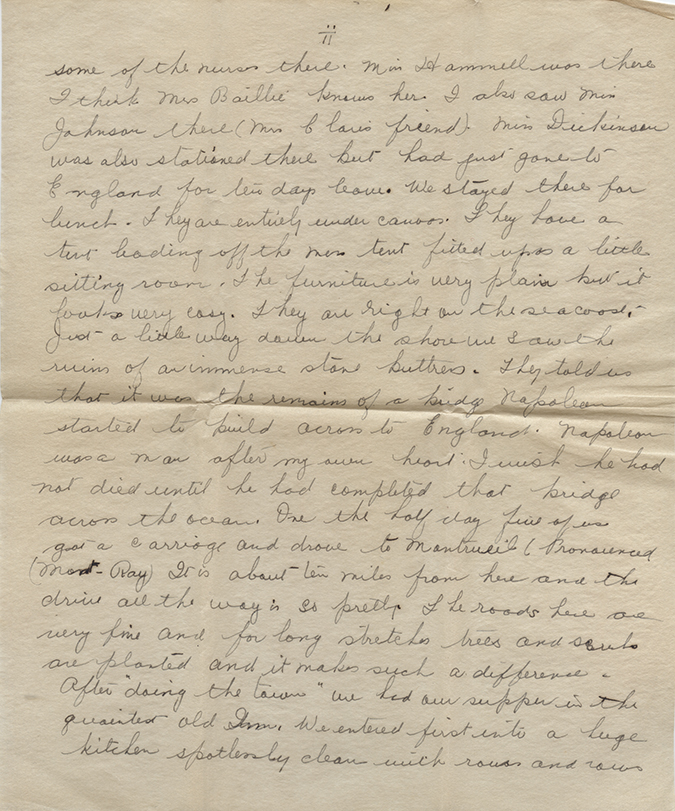 11
some of the nurses there. Miss Hammell was there
I think Mrs Baillie knows her. I also saw Miss
Johnson there (Mrs Claris friend). Miss Dickinson
was also stationed there but had just gone to
England for ten days leave. We stayed there for
lunch. They are entirely under canvas. They have a
tent leading off the mess tent fitted up as a little
sitting room. The furniture is very plain but it
looks very cosy. They are right on the seacoast.
Just a little way down the shore we saw the
ruins of an immense stone buttress. They told us
that it was the remains of a bridge Napoleon
started to build across to England. Napoleon
was a man after my own heart. I wish he had
not died until he had completed that bridge
across the ocean. One the half day five of us
got a carriage and drove to Montrueil (Pronounced
(Mont-Ray) It is about ten miles from here and the
drive all the way is so pretty. The roads here are
very fine and for long stretches trees and scrubs
are planted and it makes such a difference.
After "doing the town" we had our supper in the
quaintest old Inn. We entered first into a huge
kitchen spotlessly clean with rows and rows